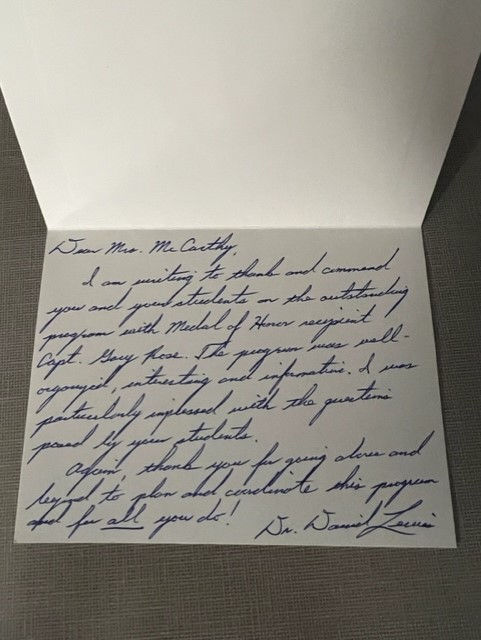 Dear Mrs. McCarthy,
I am writing to thank and commend
you and your students on the outstanding
program with Medal of Honor recipient
Capt. Gary Rose. The program was well-
organized, interesting and informative. I was
particularly impressed with the questions
posed by your students.
Again, thank you for going above and
beyond to plan and coordinate this program
and for all you do!
Dr. Daniel Lewis